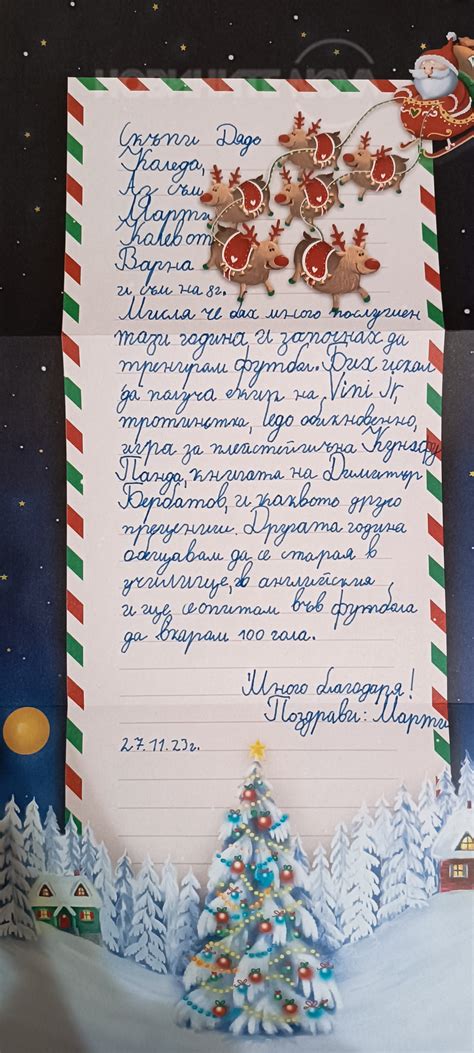 Скъпи Дядо
Коледа,
Аз съм
Марти
Калев от
Варна
и съм на 8г.
Мисля че бях много послушен
тази година и започнах да
тренирам футбол. Бих искал
да получа екип на Vini Jr,
тротинетка, лего обикновенно,
игра за плейстейшъна Кунгфу
Панда, книгата на Димитър
Бербатов, и каквото друго
прецениш. Другата година
обещавам да се старая в
училище, в английския
и ще се опитам във футбола
да вкарам 100 гола.
Много благодаря!
Поздрави: Марти
27.11.23г.